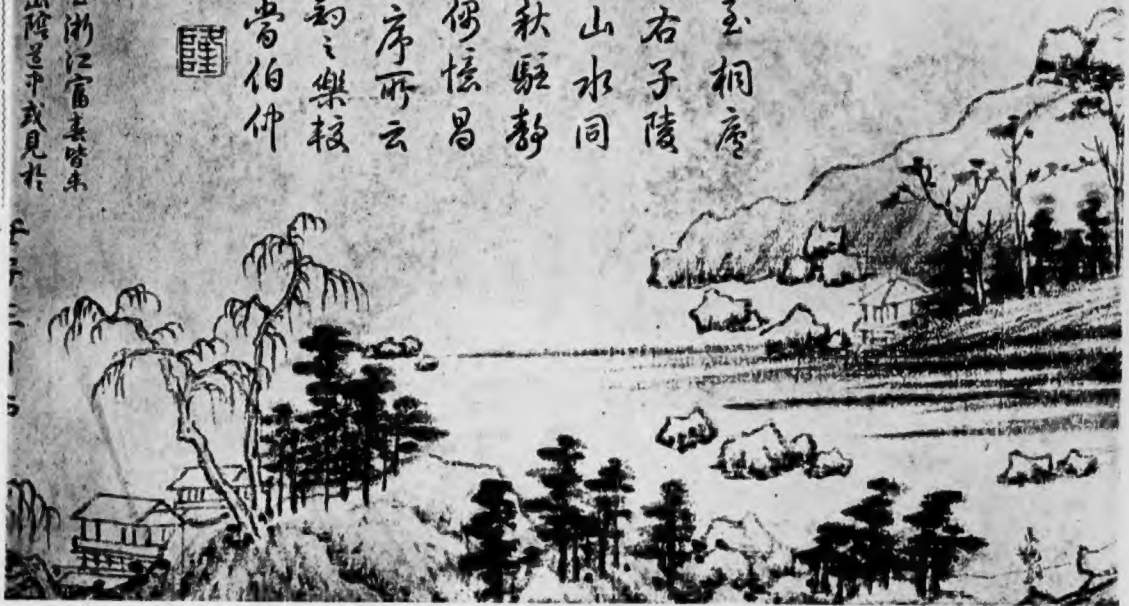 至桐廬
右子陵
山水同
秋駐靜
偶憶昌
序所云
釣之樂較
當伯仲
浙江富春皆未
山陰道中或見於